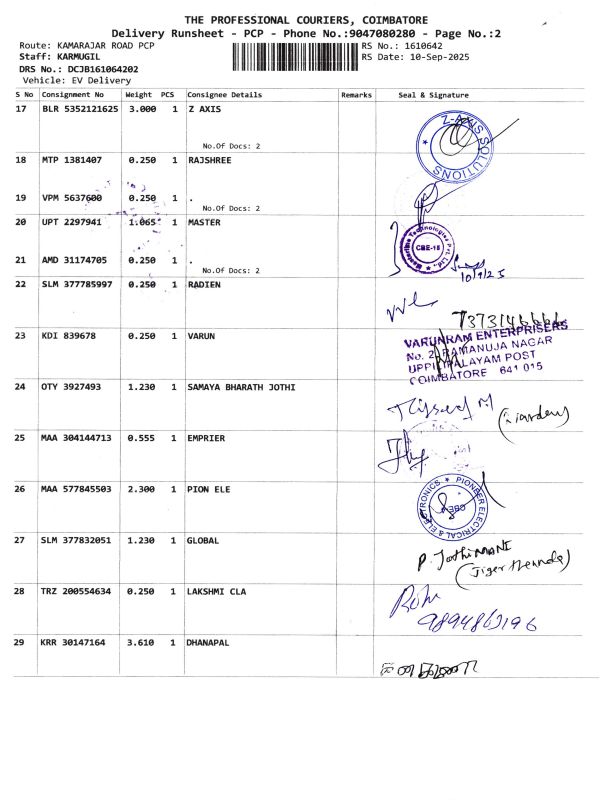 THE PROFESSIONAL COURIERS, COIMBATORE
Delivery Runsheet - PCP - Phone No.:9047080280 - Page No.:2
Route: KAMARAJAR ROAD PCP
RS No.: 1610642
Staff: KARMUGIL
RS Date: 10-Sep-2025
DRS No.: DCJB161064202
Vehicle: EV Delivery
S No Consignment No Weight PCS Consignee Details Remarks Seal & Signature
17 BLR 5352121625 3.000 1 Z AXIS
No.Of Docs: 2
Z-AXIS SOLUTIONS
18 MTP 1381407 0.250 1 RAJSHREE
19 VPM 5637600 0.250 1 .
No.Of Docs: 2
20 UPT 2297941 1.065 1 MASTER
Technologies Pvt. Ltd.
CBE-15
21 AMD 31174705 0.250 1 .
No.Of Docs: 2
10/9/25
22 SLM 377785997 0.250 1 RADIEN
23 KDI 839678 0.250 1 VARUN
VARUNRAM ENTERPRISERS
No. 2, RAMANUJA NAGAR
UPPILIPALAYAM POST
COIMBATORE 641 015
24 OTY 3927493 1.230 1 SAMAYA BHARATH JOTHI
25 MAA 304144713 0.555 1 EMPRIER
26 MAA 577845503 2.300 1 PION ELE
PIONEER ELECTRICAL & ELECTRONICS
27 SLM 377832051 1.230 1 GLOBAL
P. JothiMANI
28 TRZ 200554634 0.250 1 LAKSHMI CLA
9894863196
29 KRR 30147164 3.610 1 DHANAPAL